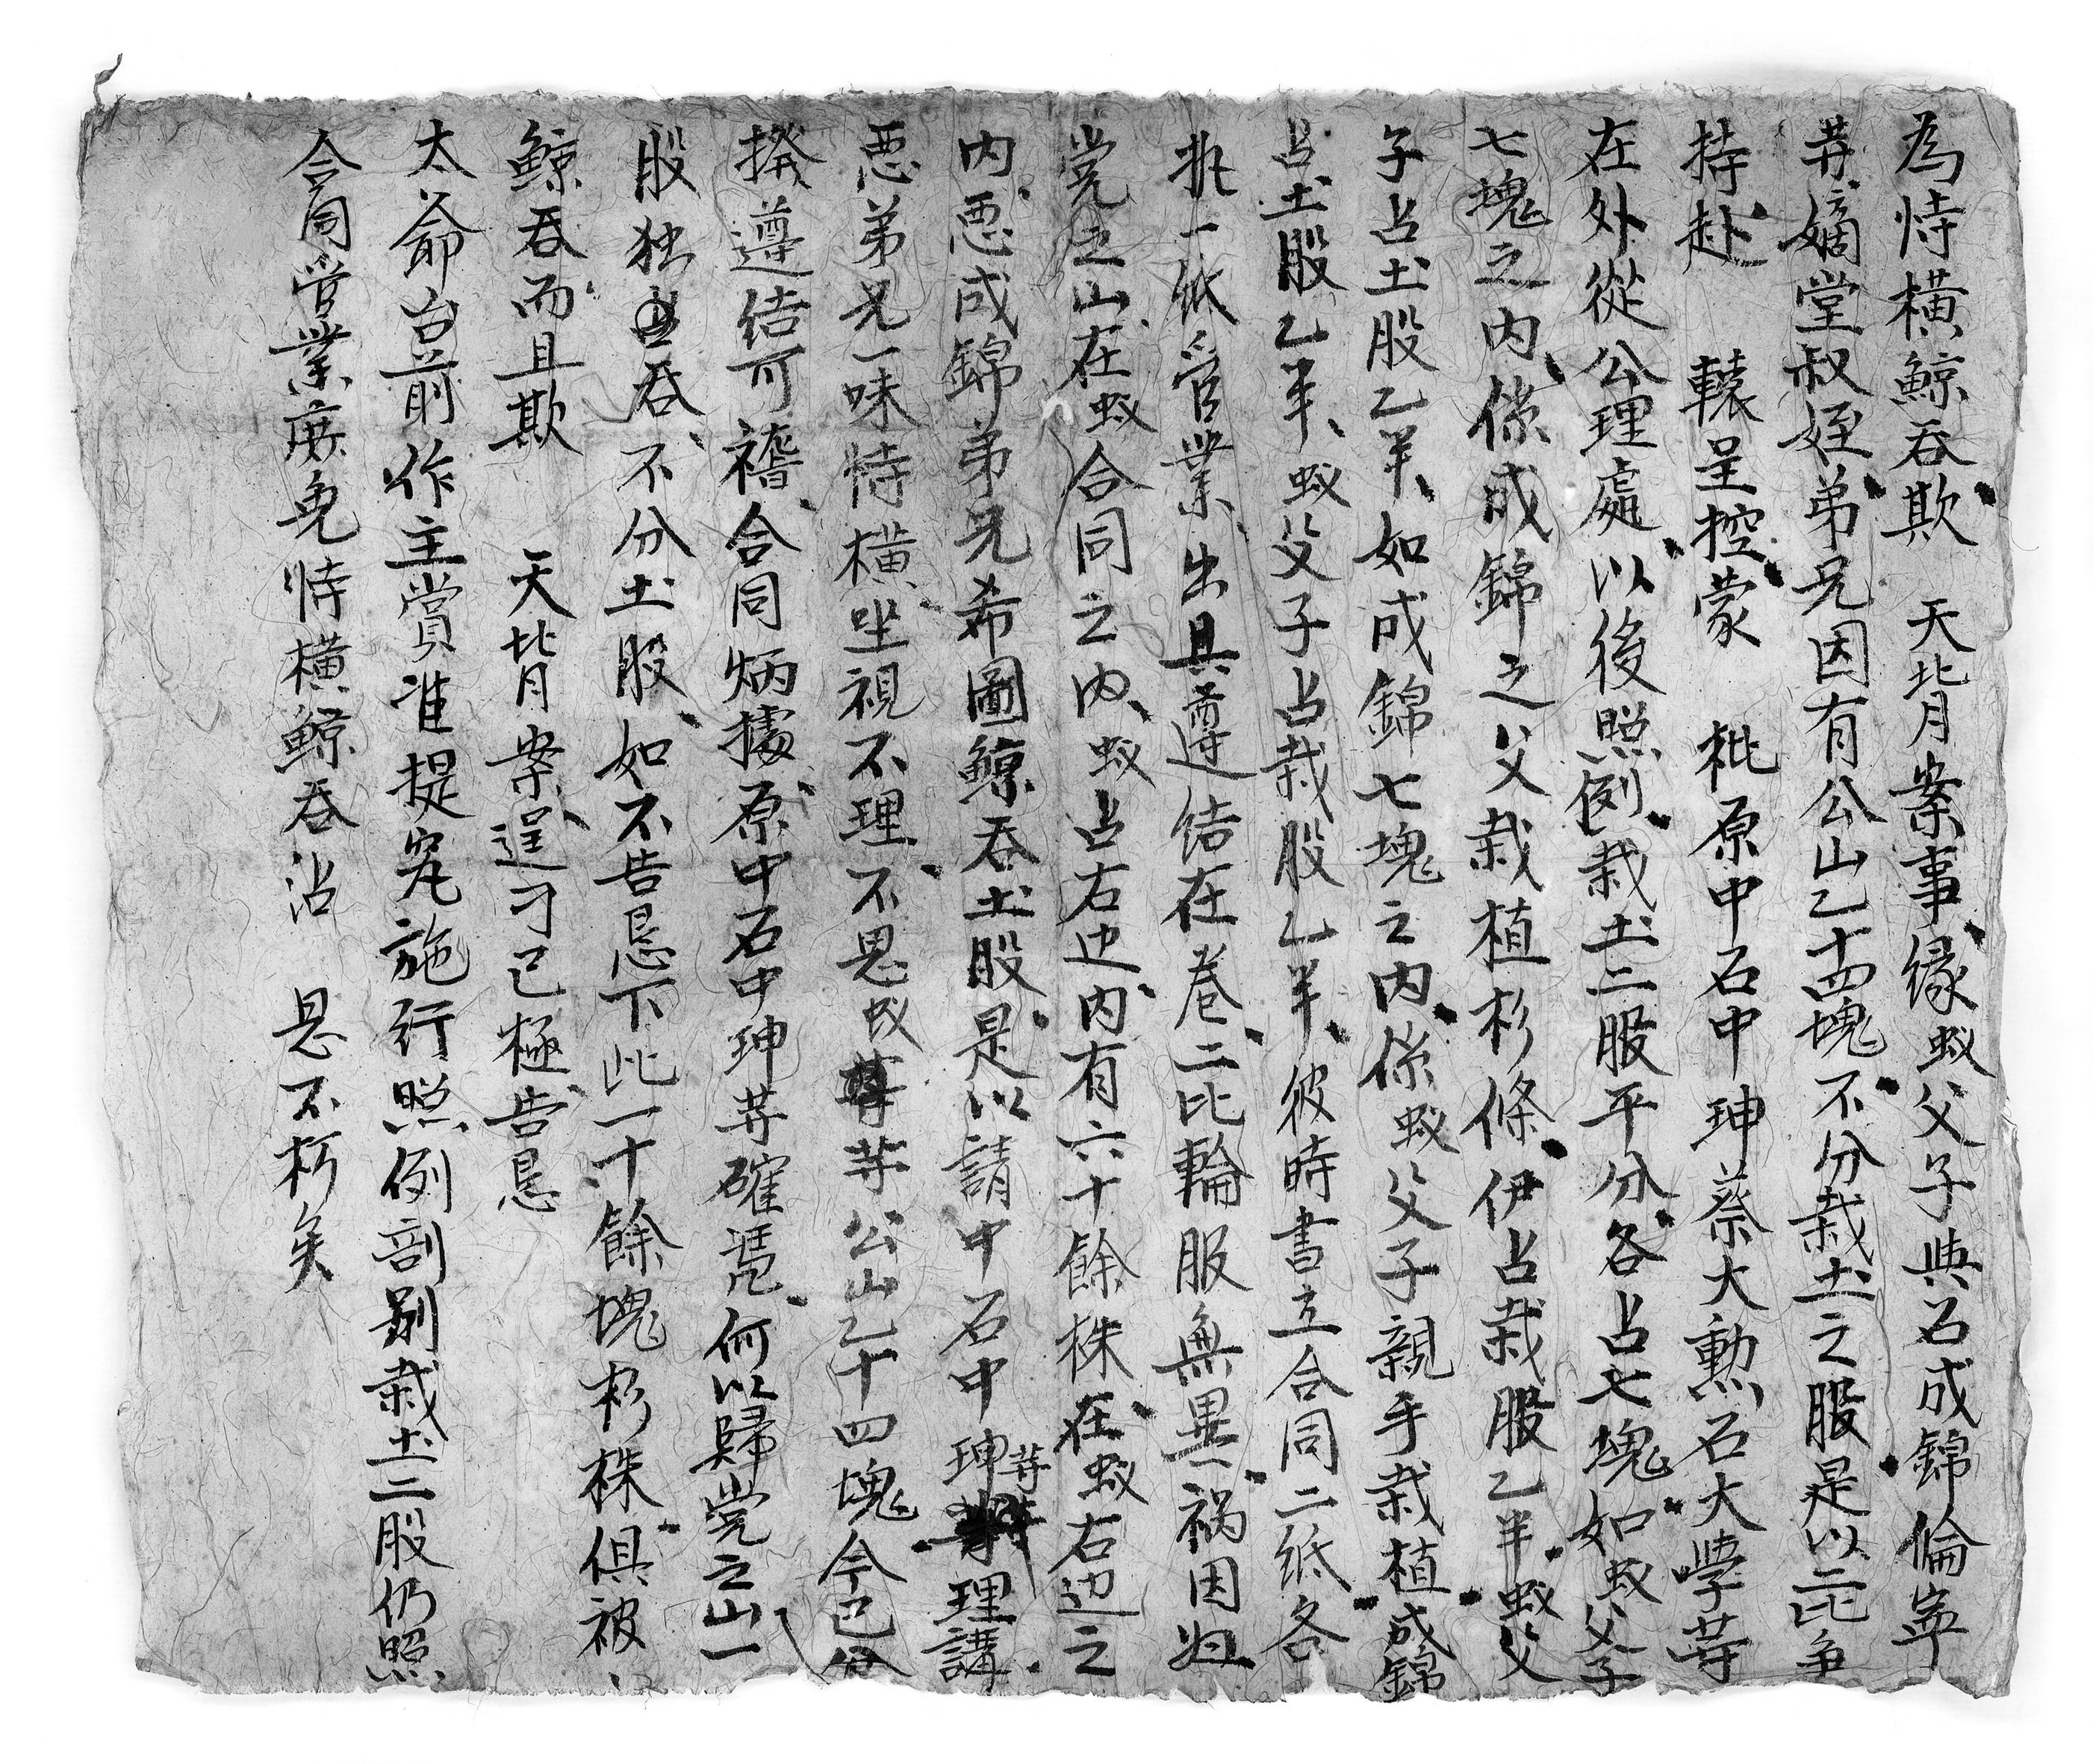 為恃橫鯨吞欺　天背案事缘蚁父子與石成錦倫寧
荓嫡堂叔姪弟兄因有公山乙十四塊不分栽土之股是以二比争
持赴　轅呈控蒙　批原中石中珅蔡大勲石大學荓
在外從公理處以後照例栽土二股平分各占七塊如蚁父子
七塊之内係成錦之父栽植杉條伊占栽股乙半蚁父
子占土股乙半如成錦七塊之内係蚁父子親手栽植成錦
占土股乙半蚁父子占栽股乙半彼時書立合同二纸各
执一纸管業出具遵结在卷二比輸服無異祸因岜
党之山在蚁合同之内蚁占右边内有六十餘株在蚁右边之
内惡成錦弟兄希圖鯨吞土股是以請中石中珅荓理講
惡弟兄一味恃橫坐視不理不思蚁荓公山乙十四塊今已分
撥遵结可稽合同炳據原中石中珅荓確憑何以歸党之山一
股独吞不分土股如不告恳下此一十餘塊杉株俱被
鯨吞而且欺　天背案逞刁已極告恳
太爺台前作主賞准提究施行照例剖别栽土二股仍照
合同管業庶免恃橫鯨吞沾　恩不朽矣